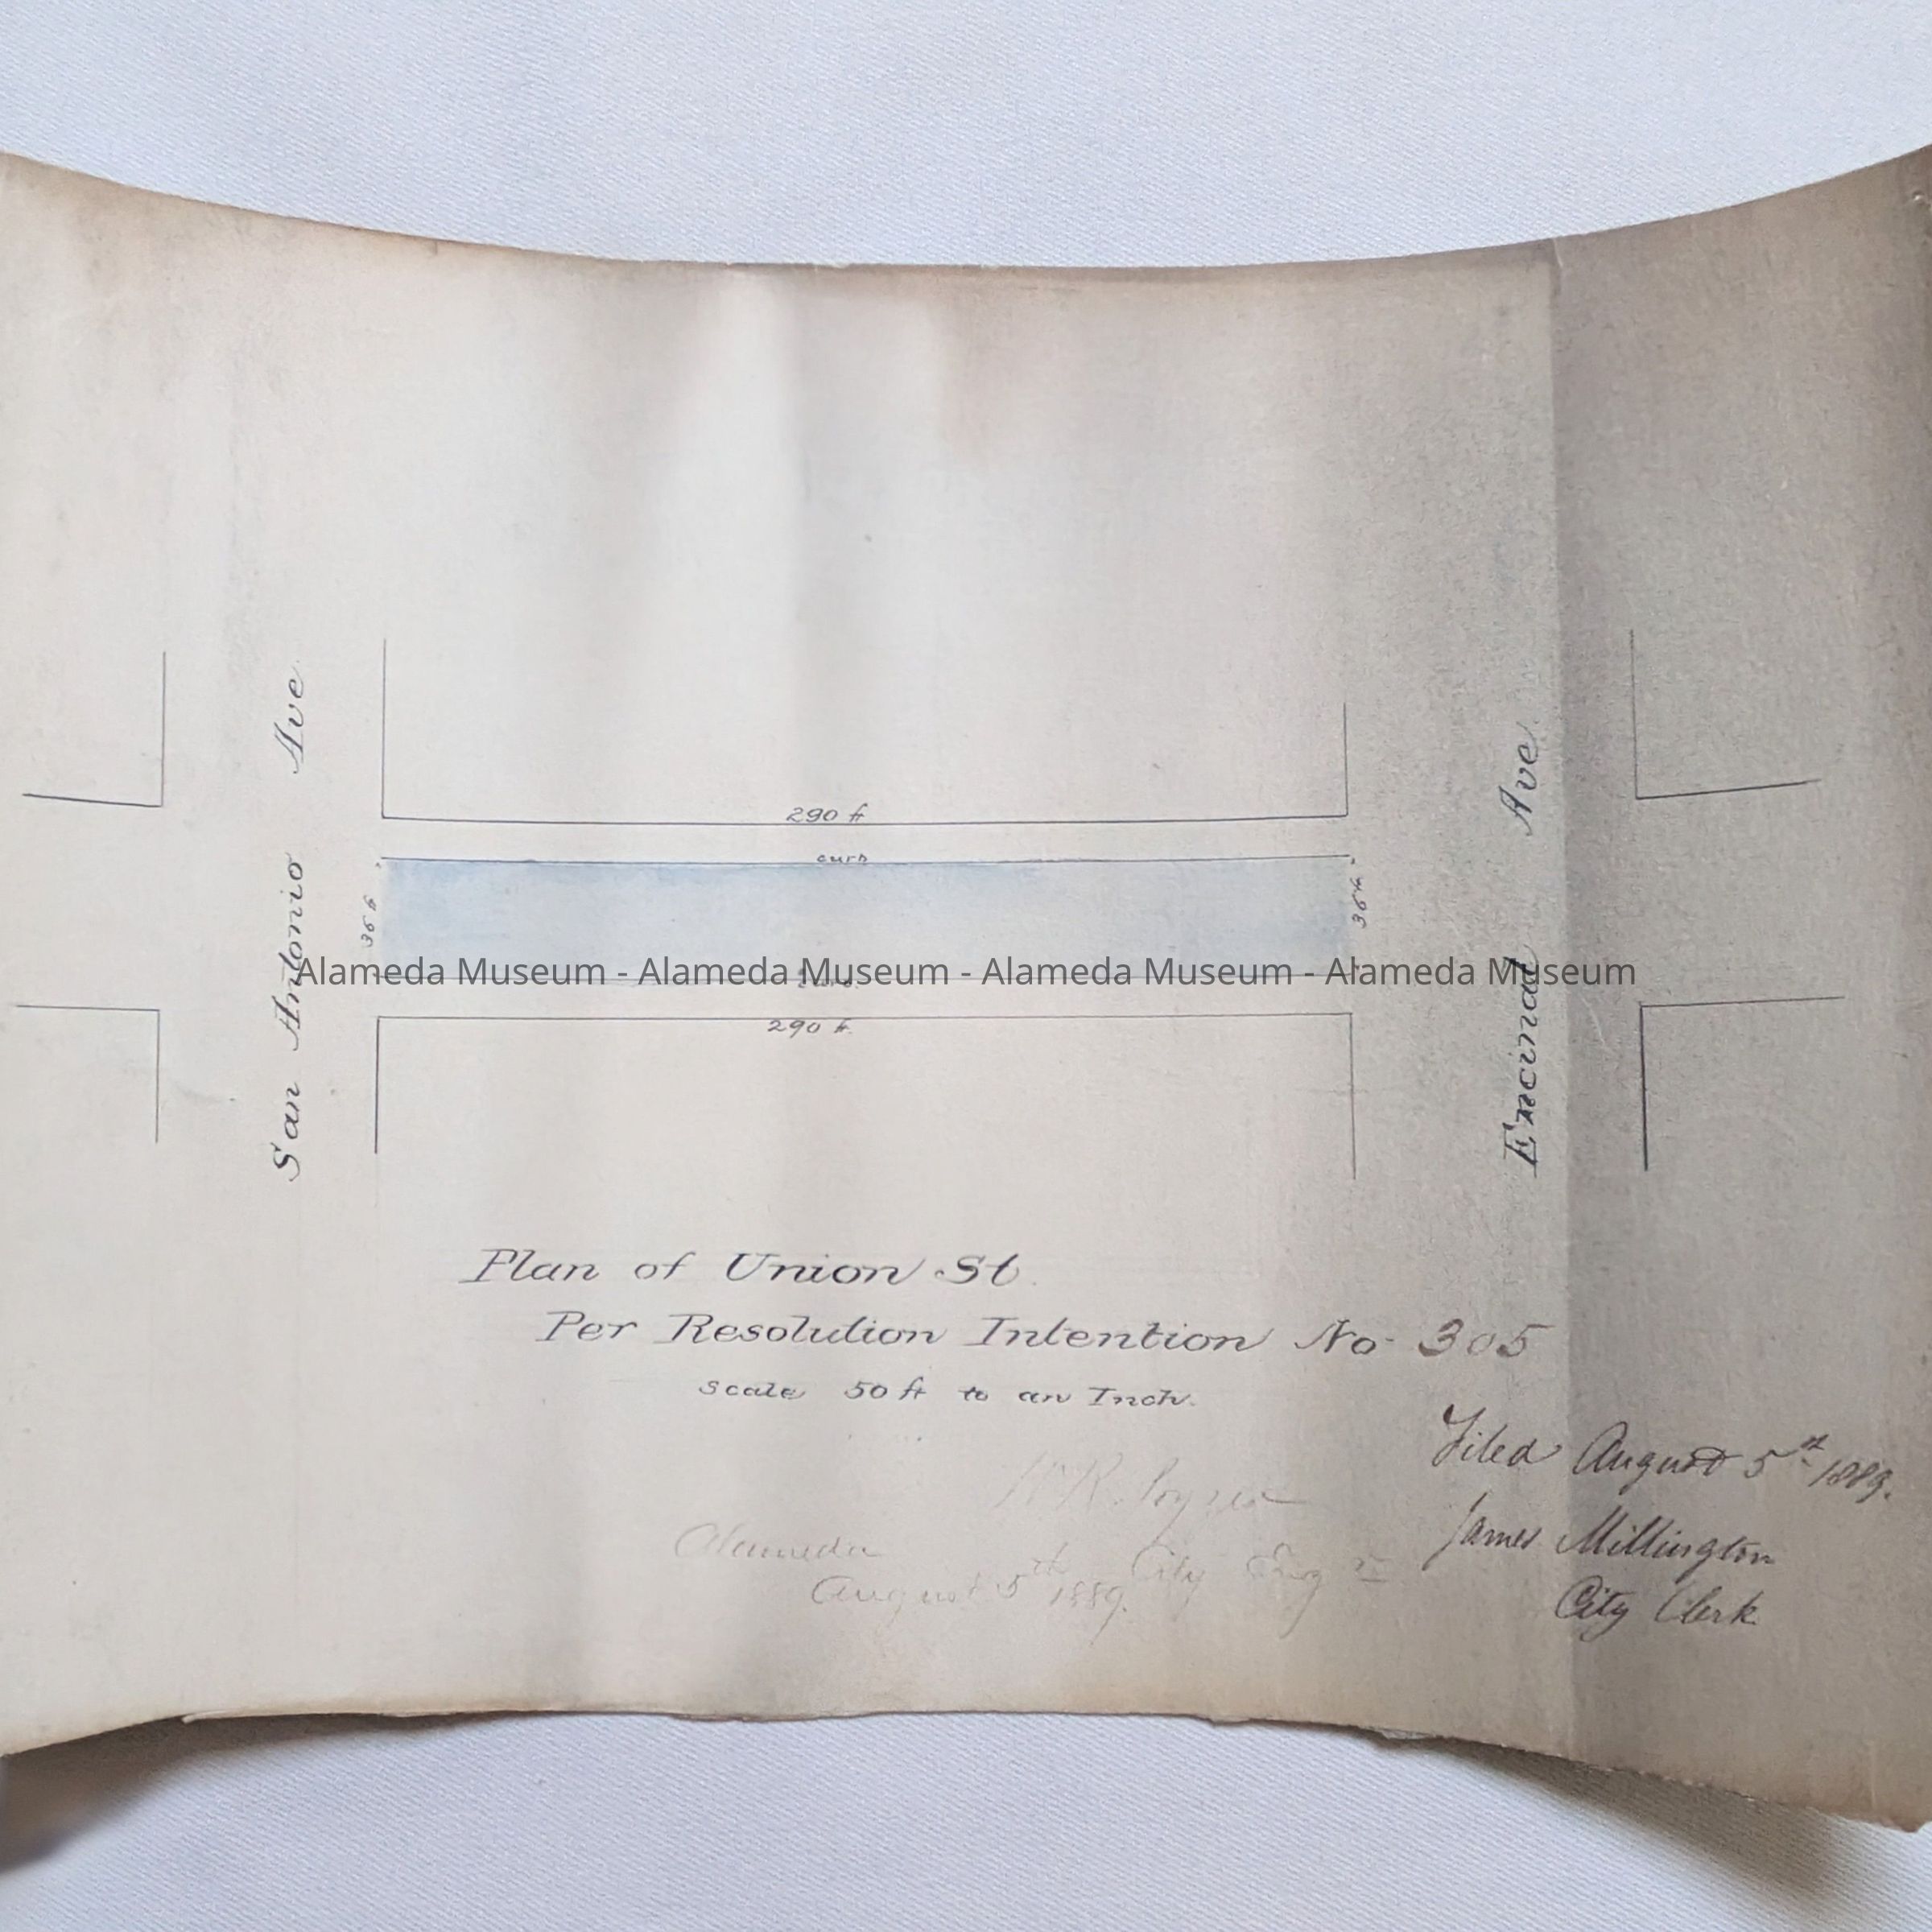 San Antonio Ave.
290 ft
curb
36 ft
36 ft
Alameda Museum - Alameda Museum - Alameda Museum - Alameda Museum
curb.
290 ft.
Encinal Ave.
Plan of Union St.
Per Resolution Intention No. 305
Scale 50 ft to an Inch.
Filed August 5th 1889.
James Millington
City Clerk
Alameda
August 5th 1889.
City Engr